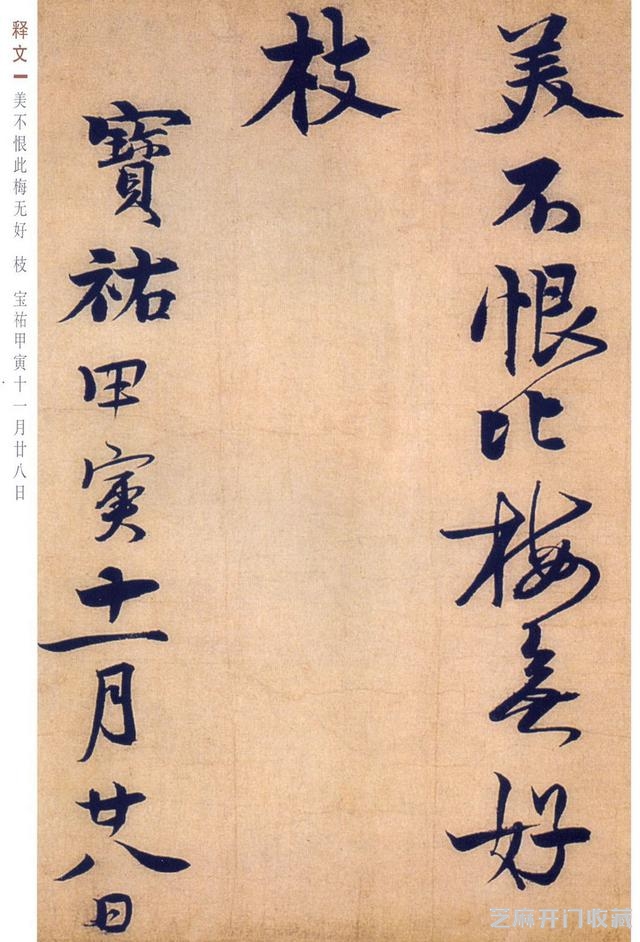 美不恨此梅無好
枝
寶祐甲寅十一月廿八日
释文 美不恨此梅无好 枝 宝祐甲寅十一月廿八日
芝麻开门收藏